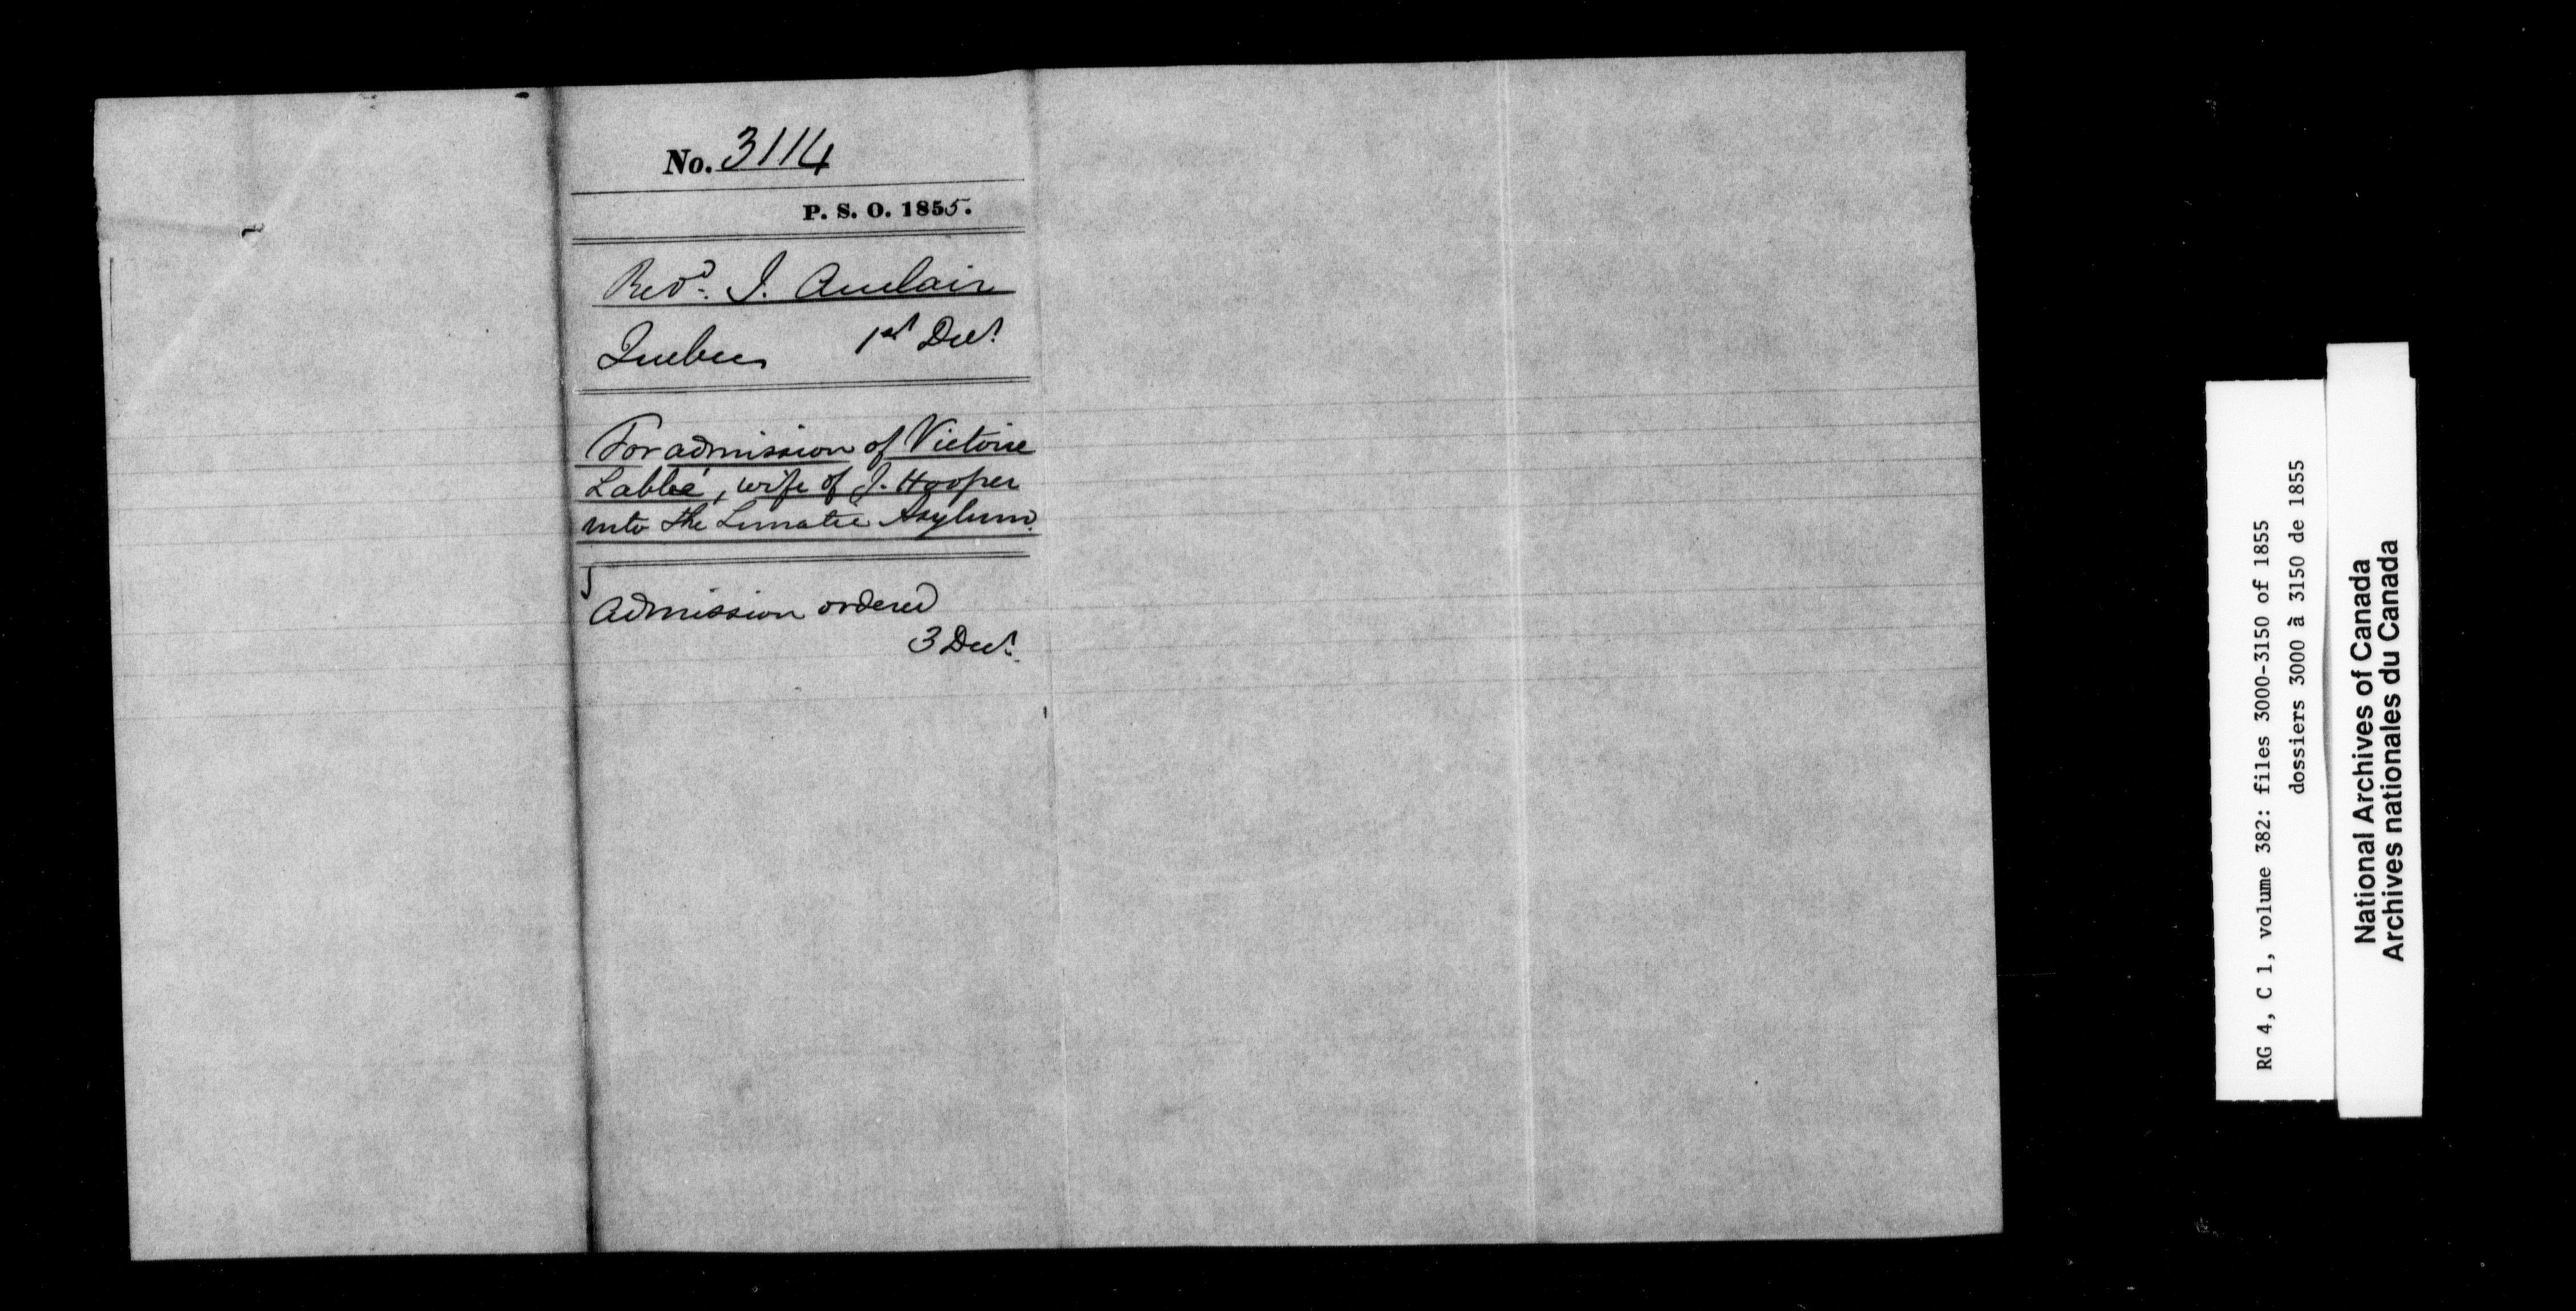 No. 3114
P. S. O. 1855.
Revd. J. Auclair
Quebec 1st Decr.
For admission of Victoire
Labbé, wife of J. Hooper
into the Lunatic Asylum.
Admission ordered
3 Decr.
RG 4, C 1, volume 382: files 3000-3150 of 1855
dossiers 3000 à 3150 de 1855
National Archives of Canada
Archives nationales du Canada